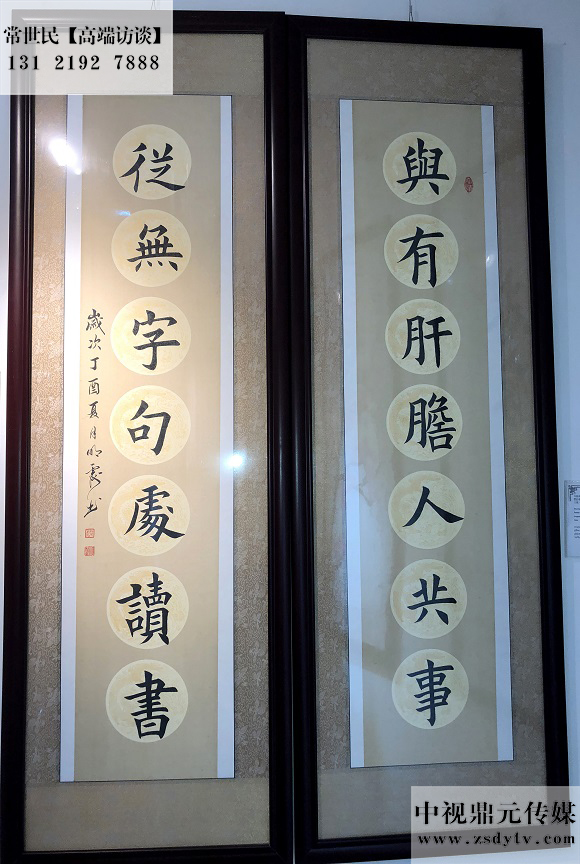 常世民【高端访谈】
131 2192 7888
與有肝膽人共事
從無字句處讀書
歲次丁酉夏月
中视鼎元传媒
www.zsdytv.com